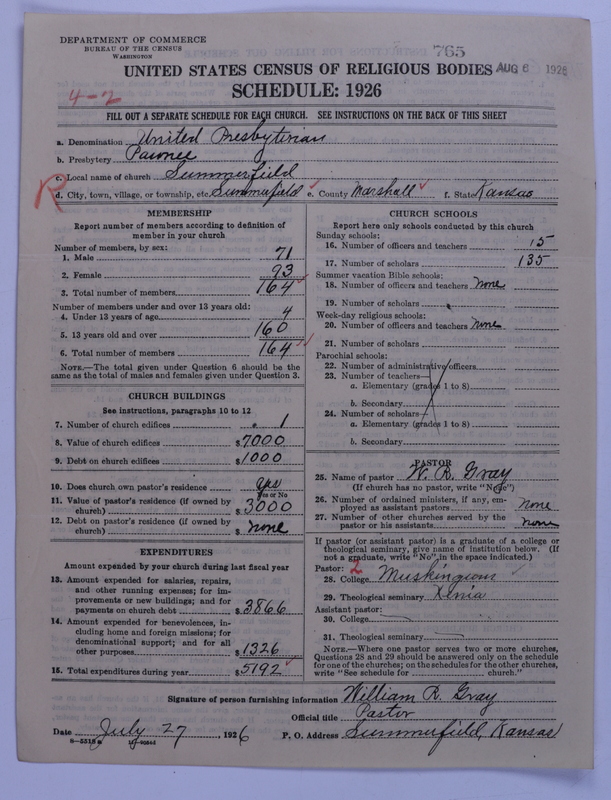 DEPARTMENT OF COMMERCE
BUREAU OF THE CENSUS
WASHINGTON
765
UNITED STATES CENSUS OF RELIGIOUS BODIES AUG 6 1926
4-2
SCHEDULE: 1926
FILL OUT A SEPARATE SCHEDULE FOR EACH CHURCH. SEE INSTRUCTIONS ON THE BACK OF THIS SHEET
a. Denomination United Presbyterian
b. Presbytery Pawnee
c. Local name of church Summerfield
R
d. City, town, village, or township, etc. Summerfield e. County Marshall f. State Kansas
MEMBERSHIP
Report number of members according to definition of
member in your church
Number of members, by sex:
1. Male 71
2. Female 93
3. Total number of members 164
Number of members under and over 13 years old:
4. Under 13 years of age 4
5. 13 years old and over 160
6. Total number of members 164
NOTE.—The total given under Question 6 should be the
same as the total of males and females given under Question 3.
CHURCH BUILDINGS
See instructions, paragraphs 10 to 12
7. Number of church edifices 1
8. Value of church edifices $7000
9. Debt on church edifices $1000
10. Does church own pastor's residence yes
Yes or No
11. Value of pastor's residence (if owned by
church) $3000
12. Debt on pastor's residence (if owned by
church) $none
EXPENDITURES
Amount expended by your church during last fiscal year
13. Amount expended for salaries, repairs,
and other running expenses; for im-
provements or new buildings; and for
payments on church debt $3866
14. Amount expended for benevolences, in-
cluding home and foreign missions; for
denominational support; and for all
other purposes $1326
15. Total expenditures during year $5192
CHURCH SCHOOLS
Report here only schools conducted by this church
Sunday schools:
16. Number of officers and teachers 15
17. Number of scholars 135
Summer vacation Bible schools:
18. Number of officers and teachers none
19. Number of scholars
Week-day religious schools:
20. Number of officers and teachers none
21. Number of scholars
Parochial schools:
22. Number of administrative officers
23. Number of teachers—
a. Elementary (grades 1 to 8)
b. Secondary
24. Number of scholars—
a. Elementary (grades 1 to 8)
b. Secondary
PASTOR
25. Name of pastor W. R. Gray
(If church has no pastor, write "None")
26. Number of ordained ministers, if any, em-
ployed as assistant pastors none
27. Number of other churches served by the
pastor or his assistants none
If pastor (or assistant pastor) is a graduate of a college or
theological seminary, give name of institution below. (If
not a graduate, write "No" in the space indicated.)
Pastor: 2
28. College Muskingum
29. Theological seminary Xenia
Assistant pastor:
30. College
31. Theological seminary
NOTE.—Where one pastor serves two or more churches,
Questions 28 and 29 should be answered only on the schedule
for one of the churches; on the schedules for the other churches,
write "See schedule for church."
Signature of person furnishing information William R. Gray
Official title Pastor
Date July 27 1926 P. O. Address Summerfield, Kansas